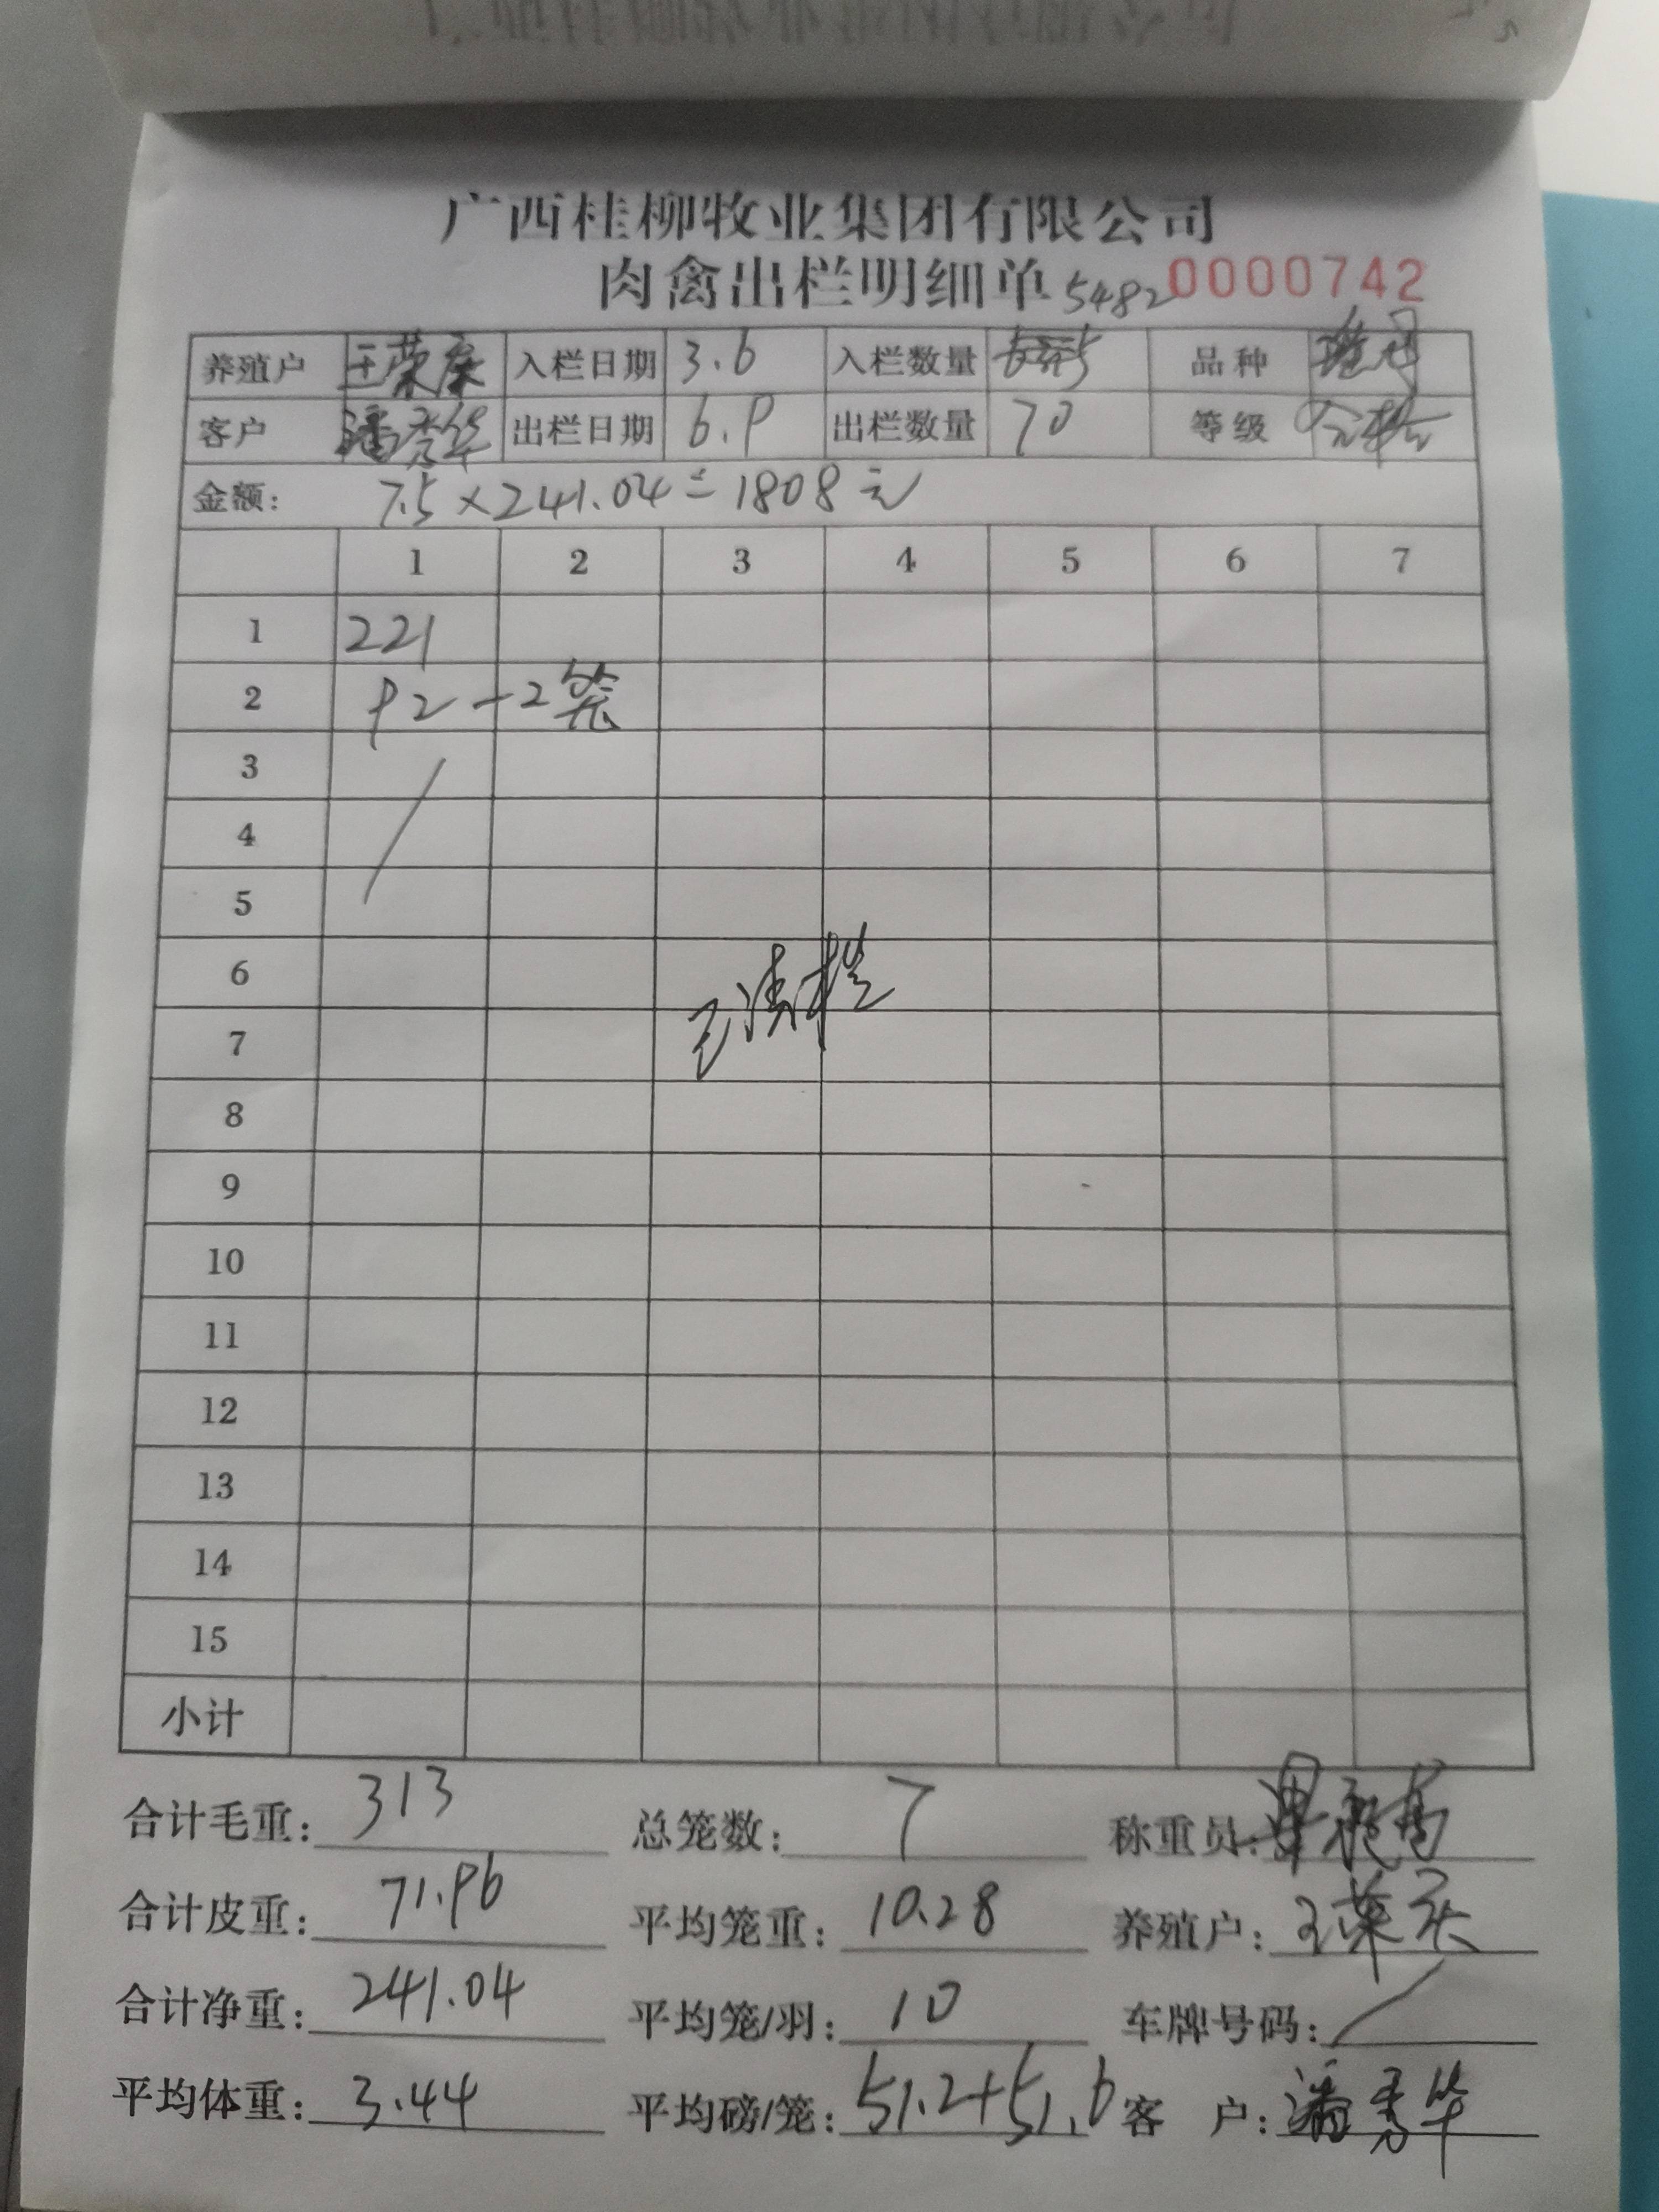 广西桂柳牧业集团有限公司
肉禽出栏明细单 5482 0000742
养殖户 王荣 入栏日期 3.6 入栏数量 品种
客户 潘秀华 出栏日期 6.9 出栏数量 70 等级
金额: 7.5×241.04=1808元
1 2 3 4 5 6 7
1 221
2 92-2笼
3
4
5
6
7
已清栏
8
9
10
11
12
13
14
15
小计
合计毛重: 313 总笼数: 7 称重员:
合计皮重: 71.96 平均笼重: 10.28 养殖户: 王荣
合计净重: 241.04 平均笼/羽: 10 车牌号码: /
平均体重: 3.44 平均磅/笼: 51.2+51.6 客 户: 潘秀华